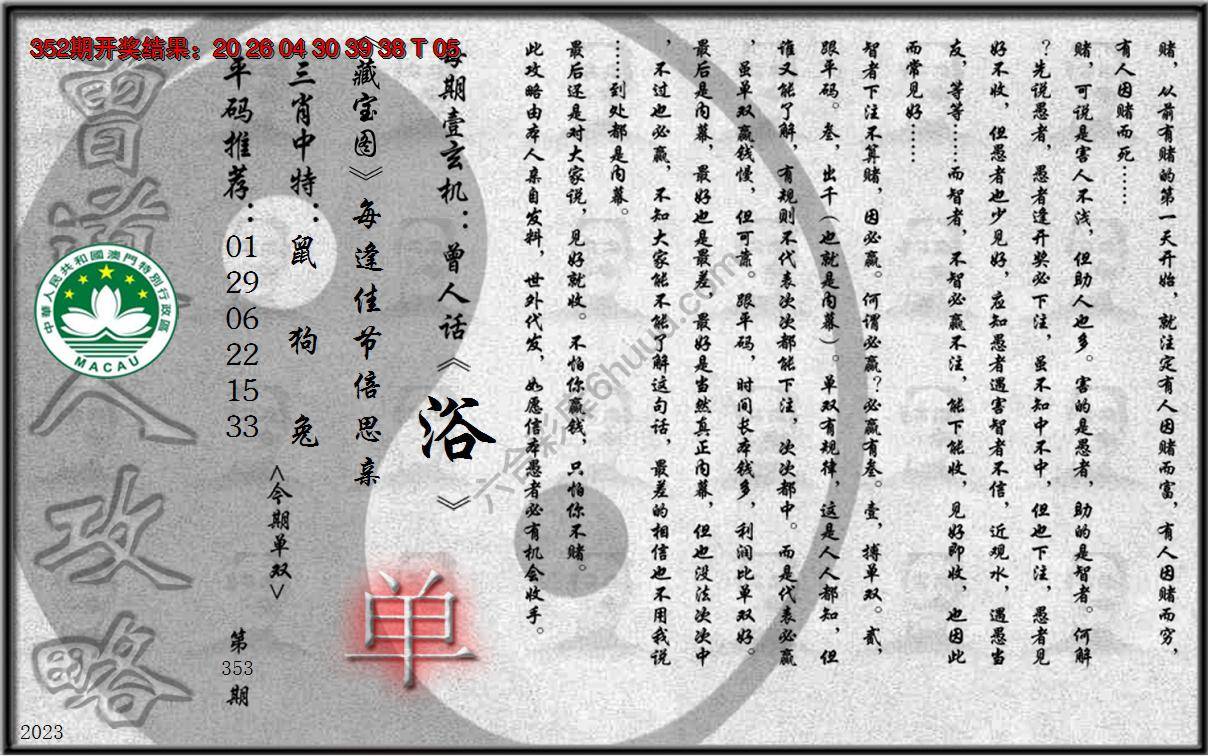 352期开奖结果：20 26 04 30 39 38 T 05
赌，从前有赌的第一天开始，就注定有人因赌而富，有人因赌而穷，
有人因赌而死……
赌，可说是害人不浅，但助人也多。害的是愚者，助的是智者。何解
？先说愚者，愚者逢开奖必下注，虽不知中不中，但也下注，愚者见
好不收，但愚者也少见好，应知愚者遇害智者不信，近观水，遇愚当
友，等等……而智者，不智必赢不注，能下能收，见好即收，也因此
而常见好……
智者下注不算赌，因必赢。何谓必赢？必赢有叁。壹，搏单双。贰，
跟平码。叁，出千（也就是内幕）。单双有规律，这是人人都知，但
谁又能了解，有规则不代表次次都能下注，次次都中。而是代表必赢
，虽单双赢钱慢，但可靠。跟平码，时间长本钱多，利润比单双好。
最后是内幕，最好也是最差，最好是当然真正内幕，但也没法次次中
，不过也必赢，不知大家能不能了解这句话，最差的相信也不用我说
……到处都是内幕。
最后还是对大家说，见好就收。不怕你赢钱，只怕你不赌。
此攻略由本人亲自发料，世外代发，如愿信本愚者必有机会收手。
每期壹玄机：曾人话《浴》
《藏宝图》每逢佳节倍思亲
单
三肖中特：鼠 狗 兔
<今期单双>
平码推荐：
01
29
06
22
15
33
第
353
期
曾道人攻略
中華人民共和國澳門特別行政區
MACAU
六合彩库6huuu.com
2023